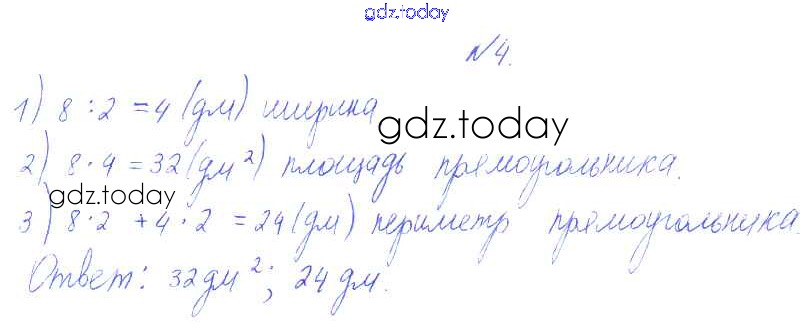 gdz.today
№4.
1) 8 : 2 = 4 (дм) ширина
gdz.today
2) 8 · 4 = 32 (дм²) площадь прямоугольника.
gdz.today
3) 8 · 2 + 4 · 2 = 24 (дм) периметр прямоугольника.
Ответ: 32 дм²; 24 дм.